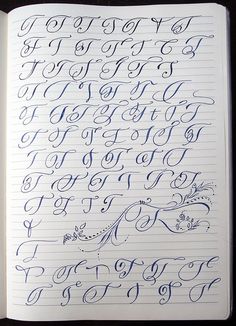 T T T T T T T
T T T T T T T
T T T T T T
T T T T T T
T T T T T t T T
T T T T T T T
T T T T T T
T T T T T T T
T T T T
T
T
T
T T T T T T T
T T T T T T